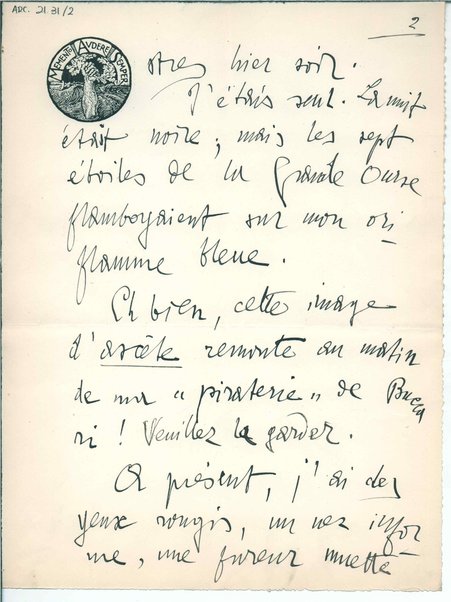 ARC. 21.31/2
2
MEMENTO AUDERE SEMPER
hier soir.
J'étais seul. La nuit
était noire ; mais les sept
étoiles de la Grande Ourse
flamboyaient sur mon ori
flamme bleue.
Eh bien, cette image
d'ascète remonte au matin
de ma « piraterie » de Bucca
ri ! Veuillez la garder.
A présent, j'ai des
yeux rougis, un nez infor
me, une fureur muette